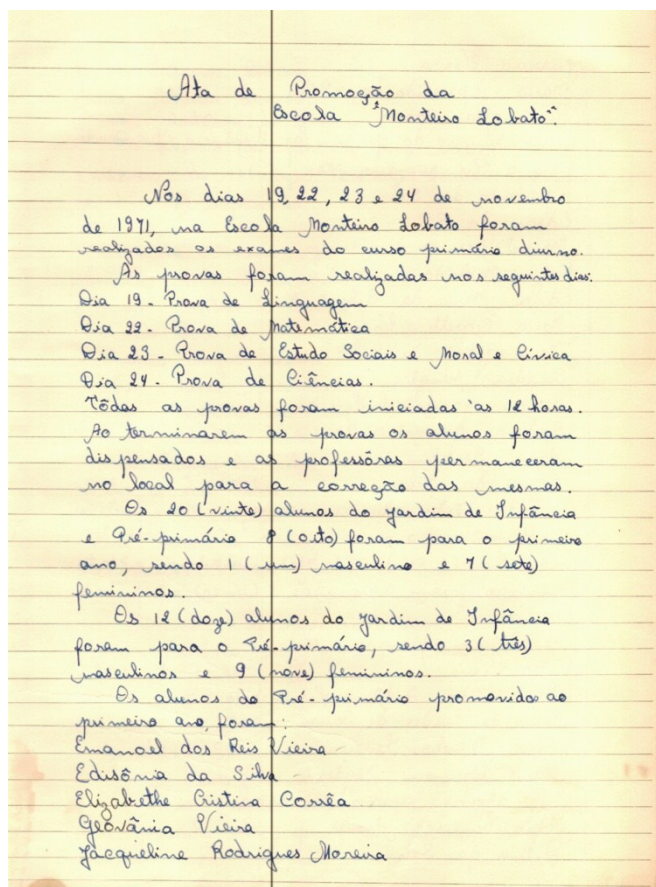 Ata de Promoção da
Escola "Monteiro Lobato".
Nos dias 19, 22, 23 e 24 de novembro
de 1971, na Escola Monteiro Lobato foram
realizados os exames do curso primário diurno.
As provas foram realizadas nos seguintes dias:
Dia 19 - Prova de Linguagem
Dia 22 - Prova de Matemática
Dia 23 - Prova de Estudo Sociais e Moral e Cívica
Dia 24 - Prova de Ciências.
Tôdas as provas foram iniciadas 'as 12 horas.
Ao terminarem as provas os alunos foram
dispensados e as professôras permaneceram
no local para a correção das mesmas.
Os 20 (vinte) alunos do Jardim de Infância
e Pré-primário 8 (oito) foram para o primeiro
ano, sendo 1 (um) masculino e 7 (sete)
femininos.
Os 12 (doze) alunos do Jardim de Infância
foram para o Pré-primário, sendo 3 (três)
masculinos e 9 (nove) femininos.
Os alunos do Pré-primário promovidos ao
primeiro ano, foram:
Emanoel dos Reis Vieira
Edisônia da Silva
Elizabethe Cristina Corrêa
Geovânia Vieira
Jacqueline Rodrigues Moreira